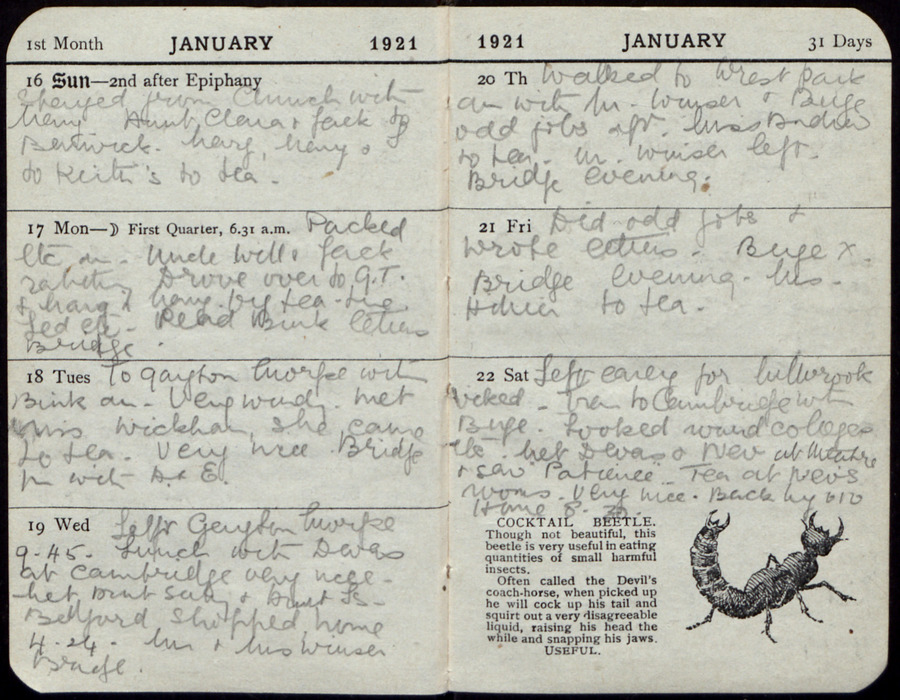 1st Month JANUARY 1921
16 Sun—2nd after Epiphany
from Church with
Aunt Clara & Jack to
Berwick. Marg, &
to Keith's to tea.
17 Mon—☽ First Quarter, 6.31 a.m. Packed
etc an. Uncle Will & Jack
Drove over to G.T.
& Marg & by tea-time
Read Bink letters
Bridge.
18 Tues To Gayton Thorpe with
Bink an. Very windy. Met
Miss Wickham, she came
to tea. Very nice Bridge
pm with A & E.
19 Wed Left Gayton Thorpe
9.45. Lunch with Devas
at Cambridge very nice.
Met Aunt & Aunt
Bedford shopped home
4.24. Mr & Mrs Winser
Bridge.
1921 JANUARY 31 Days
20 Th Walked to Wrest Park
an with Mr. Winser & Buge
odd jobs aft. Miss
to tea. Mr. Winser left.
Bridge evening.
21 Fri Did odd jobs &
wrote letters. Buge X.
Bridge evening. Mrs
to tea.
22 Sat Left early for Millbrook
Train to Cambridge with
Buge. Looked round colleges
etc. Met Devas & Nev at theatre
& saw "Patience". Tea at Nev's
rooms. Very nice. Back by 6.10
Home 8.
COCKTAIL BEETLE.
Though not beautiful, this
beetle is very useful in eating
quantities of small harmful
insects.
Often called the Devil's
coach-horse, when picked up
he will cock up his tail and
squirt out a very disagreeable
liquid, raising his head the
while and snapping his jaws.
USEFUL.